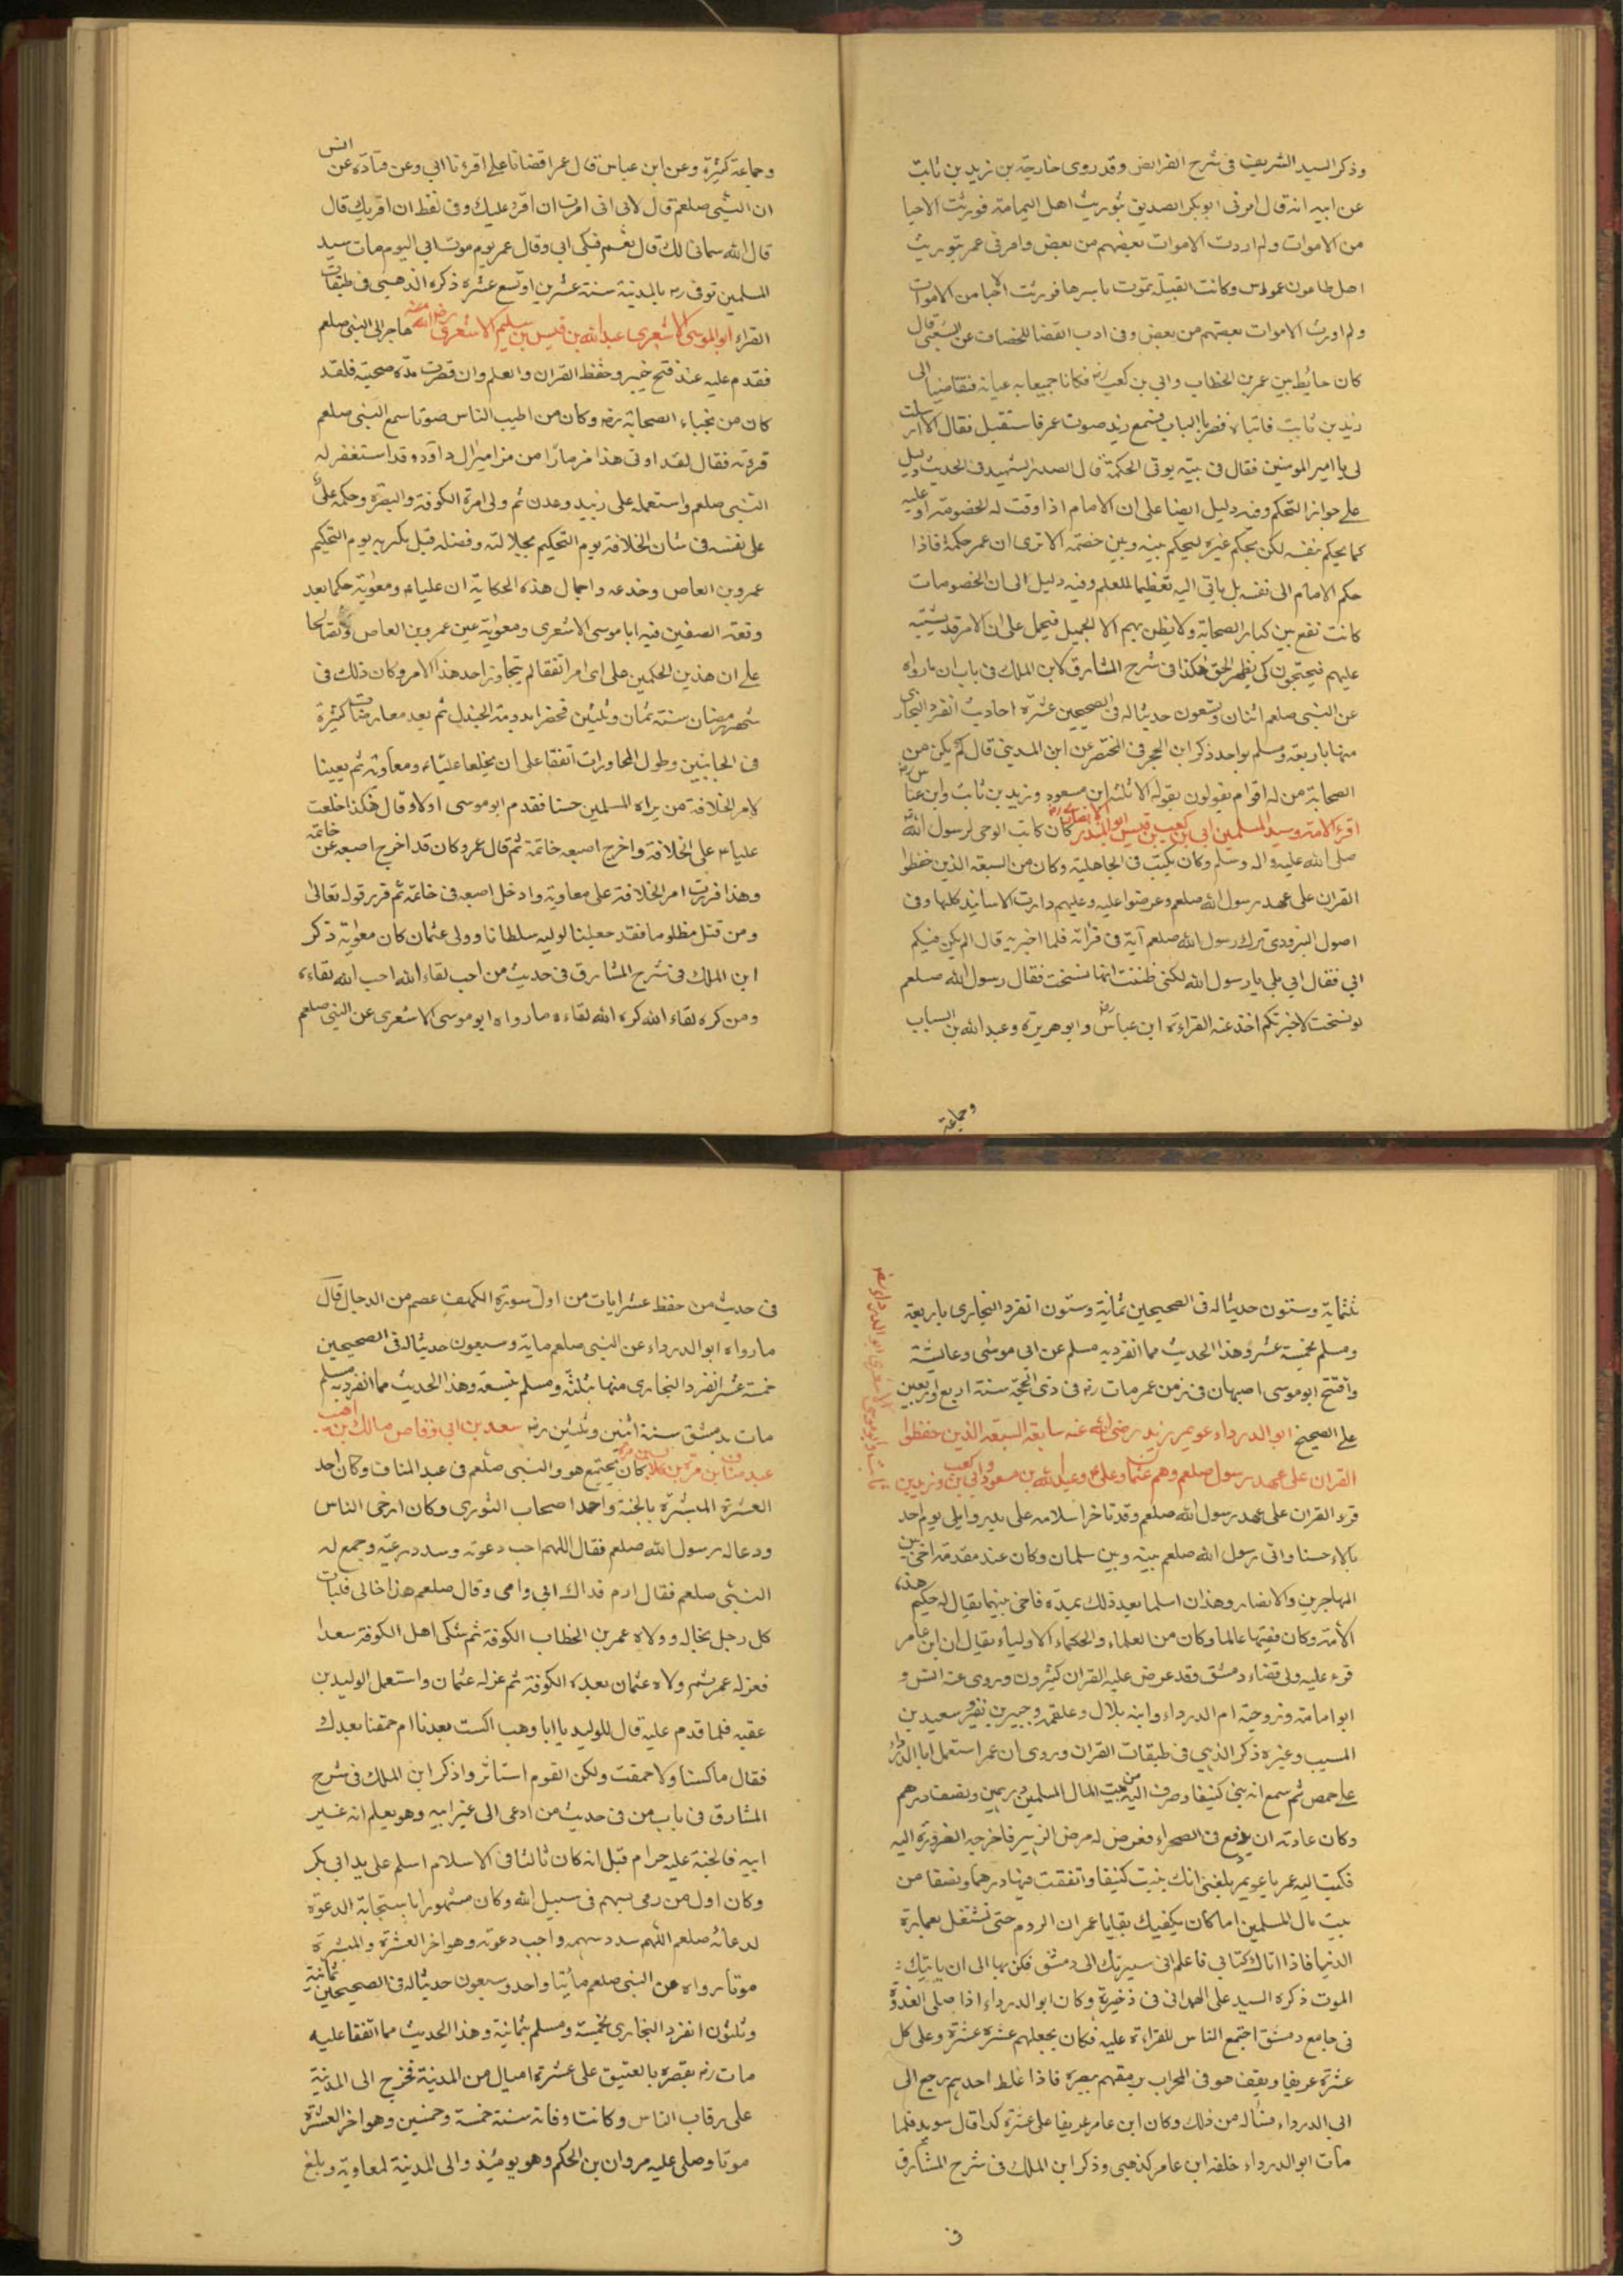 وذكر السيد الشريف فى شرح الفرائض وقد روى خارجة بن زيد بن ثابت
عن ابيه انه قال امرنى ابو بكر الصديق بتوريث اهل اليمامة فورثت الاحيا
من الاموات ولم اردت الاموات بعضهم من بعض وامرنى عمر بتوريث
اهل طاعون عمواس وكانت القبيلة تموت باسرها فورثت الاحيا من الاموات
ولم اورث الاموات بعضهم من بعض وفى ادب القضا للخصاف عن الشعبى قال
كان حايط بين عمر بن الخطاب وابى بن كعب رضه فكانا جميعا يدعيانه فتقاضيا الى
زيد بن ثابت فاتياه فضربا الباب فسمع زيد صوت عمر فاستقبل فقال الا ارسلت
لى يا امير المومنين فقال فى بيته يوتى الحكمة قال الصدر الشهيد فى الحديث دليل
على جواز التحكم وفيه دليل ايضا على ان الامام اذا وقت له الخصومة او عليه
كما يحكم بنفسه لكن يحكم غيره ليحكم بينه وبين خصمه الا ترى ان عمر حكمه فاذا
حكم الامام الى نفسه بل ياتى اليه تعظيما للعلم وفيه دليل الى ان الخصومات
كانت تقع بين كبار الصحابة ولا يظن بهم الا الجميل فيحمل على ان الامر قد يشتبه
عليهم فيحتجون كى يظهر الحق هكذا فى شرح المشارق لابن الملك فى باب ان ما رواه
عن النبى صلعم اثنان وتسعون حديثا له فى الصحيحين عشرة احاديث انفرد البخارى
منها باربعة ومسلم بواحد ذكر ابن الحجر فى المختصر عن ابن المدينى قال لم يكن من
الصحابة من له اقوام يقولون بقوله الا ثلثه ابن مسعود وزيد بن ثابت وابن عباس رضه
اقرء الامة وسيد المسلمين ابى بن كعب بن قيس ابو المنذر الانصارى رضه كان كاتب الوحى لرسول الله
صلى الله عليه واله وسلم وكان يكتب فى الجاهلية وكان من السبعة الذين حفظوا
القران على عهد رسول الله صلعم وعرضوا عليه وعليهم دارت الاسانيد كلها وفى
اصول البزودى ترك رسول الله صلعم آية فى قرأته فلما اخبر به قال الم يكن فيكم
ابى فقال ابى بلى يا رسول الله لكنى ظننت انها نسخت فقال رسول الله صلعم
لو نسخت لاخبرتكم اخذ عنه القراءة ابن عباس رضه وابو هريرة وعبد الله بن السباب
وجماعة
وجماعة كثيرة وعن ابن عباس قال عمر اقضانا على اقرءنا ابى وعن قتادة عن انس
ان النبى صلعم قال لابى انى امرت ان اقرء عليك وفى لفظ ان اقريك قال
قال الله سمانى لك قال نعم فبكى ابى وقال عمر يوم موت ابى اليوم مات سيد
المسلمين توفى رض بالمدينة سنة عشرين او تسع عشره ذكره الذهبى فى طبقات
القراء ابو الموسى الاشعرى عبد الله بن قيس بن سليم الاشعرى رضى الله عنه هاجر الى النبى صلعم
فقدم عليه عند فتح خيبر وحفظ القران والعلم وان قصرت مدة صحبته فلقد
كان من نجباء الصحابة رضه وكان من اطيب الناس صوتا سمع النبى صلعم
قرءته فقال لقد اوتى هذا مزمارا من مزامير ال داود وقد استغفر له
النبى صلعم واستعمله على زبيد وعدن ثم ولى امرة الكوفة والبصره وحكمه على
على نفسه فى شان الخلافة يوم التحكيم بجلالته وفضله قبل مكر به يوم التحكيم
عمرو بن العاص وخدعه واجمال هذه الحكاية ان علياء ومعوية حكما بعد
وقعة الصفين فيه ابا موسى الاشعرى ومعوية عين عمرو بن العاص وتقالحا
على ان هذين الحكمين على اى امر اتفقا لم يتجاوز احد هذا الامر وكان ذلك فى
شهر رمضان سنة ثمان وثلثين فحضرا بدومة الجندل ثم بعد معارضات كثيرة
فى الجانبين وطول المحاورات اتفقا على ان يخلعا علياء ومعاوية ثم يعينا
لامر الخلافة من يراه المسلمين حسنا فقدم ابو موسى اولا وقال هكذا خلعت
علياء على الخلافة واخرج اصبعه خاتمة ثم قال عمرو كان قد اخرج اصبعه عن خاتمه
وهذا قررت امر الخلافة على معاوية وادخل اصبعه فى خاتمه ثم قرر قوله تعالى
ومن قتل مظلوما فقد جعلنا لوليه سلطانا وولى عثمان كان معوية ذكر
ابن الملك فى شرح المشارق فى حديث من احب لقاء الله احب الله لقاءه
ومن كره لقاء الله كره الله لقاءه ما رواه ابو موسى الاشعرى عن النبى صلعم
ثلثماية وستون حديثا له فى الصحيحين ثمانية وستون انفرد البخارى باربعة
ومسلم بخمسة عشر وهذا الحديث مما انفرد به مسلم عن ابى موسى وعايشة
وافتتح ابو موسى اصبهان فى زمن عمر مات رض فى ذى الحجة سنة اربع واربعين
على الصحيح ابو الدرداء عويمر بن زيد رضى الله عنه سابقه السبعة الذين حفظوا
القران على عهد رسول صلعم وهم عثمان وعلى وعبد الله بن مسعود وابى بن كعب وزيد بن
قرء القران على عهد رسول الله صلعم وقد تاخر اسلامه على بدر وابلى يوم احد
بلاء حسنا واتى رسول الله صلعم بينه وبين سلمان وكان عند مقدمة اخى بين
المهاجرين والانصار وهذان اسلما بعد ذلك بمدة فاخى بينهما يقال له حكيم هذه
الامة وكان فقيها عالما وكان من العلماء والحكماء الاولياء يقال ان ابن عامر
قرء عليه ولى قضاء دمشق وقد عرض عليه القران كثيرون وروى عنه انس و
ابو امامة وزوجته ام الدرداء وابنه بلال وعلقمة وجبير بن نفير وسعيد بن
المسيب وغيره ذكر الذهبى فى طبقات القران وروى ان عمر استعمل ابا الدرداء
على حمص ثم سمع انه بنى كنيفا وصرف اليه من بيت المال المسلمين درهمين ونصف درهم
وكان عادته ان يدفع فى الصحراء فعرض له مرض الزحير فاخرجه الضرورة اليه
فكتب اليه عمر يا عويمر بلغنى انك بنيت كنيفا واتفقت فيها درهما ونصفا من
بيت مال المسلمين اما كان يكفيك بقايا عمران الروم حتى تشتغل بعمارة
الدنيا فاذا اتاك كتابى فاعلم انى سيرتك الى دمشق فكن بها الى ان ياتيك
الموت ذكره السيد على الهمدانى فى ذخيرة وكان ابو الدرداء اذا صلى الغدوة
فى جامع دمشق اجتمع الناس للقراءة عليه فكان يجعلهم عشره عشرة وعلى كل
عشرة عريفا ويقف هو فى المحراب يرمقهم ببصره فاذا غلط احدهم رجع الى
ابى الدرداء فسأله من ذلك وكان ابن عامر عريفا على عشرة كذا قال سويد فلما
مات ابو الدرداء خلفه ابن عامر كذهبى وذكر ابن الملك فى شرح المشارق
فى
فى حديث من حفظ عشر ايات من اول سورة الكهف عصم من الدجال قال
ما رواه ابو الدرداء عن النبى صلعم ماية وسبعون حديثا له فى الصحيحين
خمسة عشر انفرد البخارى منها بثلثة ومسلم بتسعة وهذا الحديث مما انفرد به مسلم
مات بدمشق سنة اثنين وثلثين رضه سعد بن ابى وقاص مالك بن اهيب
عبد مناف ابن مرة بن كلاب كان يجتمع هو والنبى صلعم فى عبد المناف وكان احد
العشرة المبشرة بالجنة واحدا اصحاب الثورى وكان ارخى الناس
ودعا له رسول الله صلعم فقال اللهم احب دعوته وسدد رميه وجمع له
النبى صلعم فقال ارم فداك ابى وامى وقال صلعم هذا خالى فليات
كل رجل بخاله وولاه عمر بن الخطاب الكوفة ثم شكى اهل الكوفة سعدا
فعزله عمر ثم ولاه عثمان بعده الكوفة ثم عزله عثمان واستعمل الوليد بن
عقبه فلما قدم عليه قال للوليد يا ابا وهب اكست بعدنا ام حمقنا بعدك
فقال ما كسنا ولا حمقت ولكن القوم استاثروا ذكر ابن الملك فى شرح
المشارق فى باب من فى حديث من ادعى الى غير ابيه وهو يعلم انه غير
ابيه فالجنة عليه حرام قبل انه كان ثالثا فى الاسلام اسلم على يد ابى بكر
وكان اول من رمى بسهم فى سبيل الله وكان مشهورا باستجابة الدعوة
لدعائه صلعم اللهم سدد سهمه واجب دعوته وهو اخر العشرة والمبشرة
موتا رواه عن النبى صلعم مائتا واحد وسبعون حديثا له فى الصحيحين ثمانية
وثلثون انفرد البخارى بخمسة ومسلم بثمانية وهذا الحديث مما اتفقا عليه
مات رض بقصره بالعتيق على عشرة اميال من المدينة فخرج الى المدينة
على رقاب الناس وكانت وفاته سنة خمسة وخمسين وهو اخر العشرة
موتا وصلى عليه مروان بن الحكم وهو يومئذ والى المدينة لمعاوية وبلغ